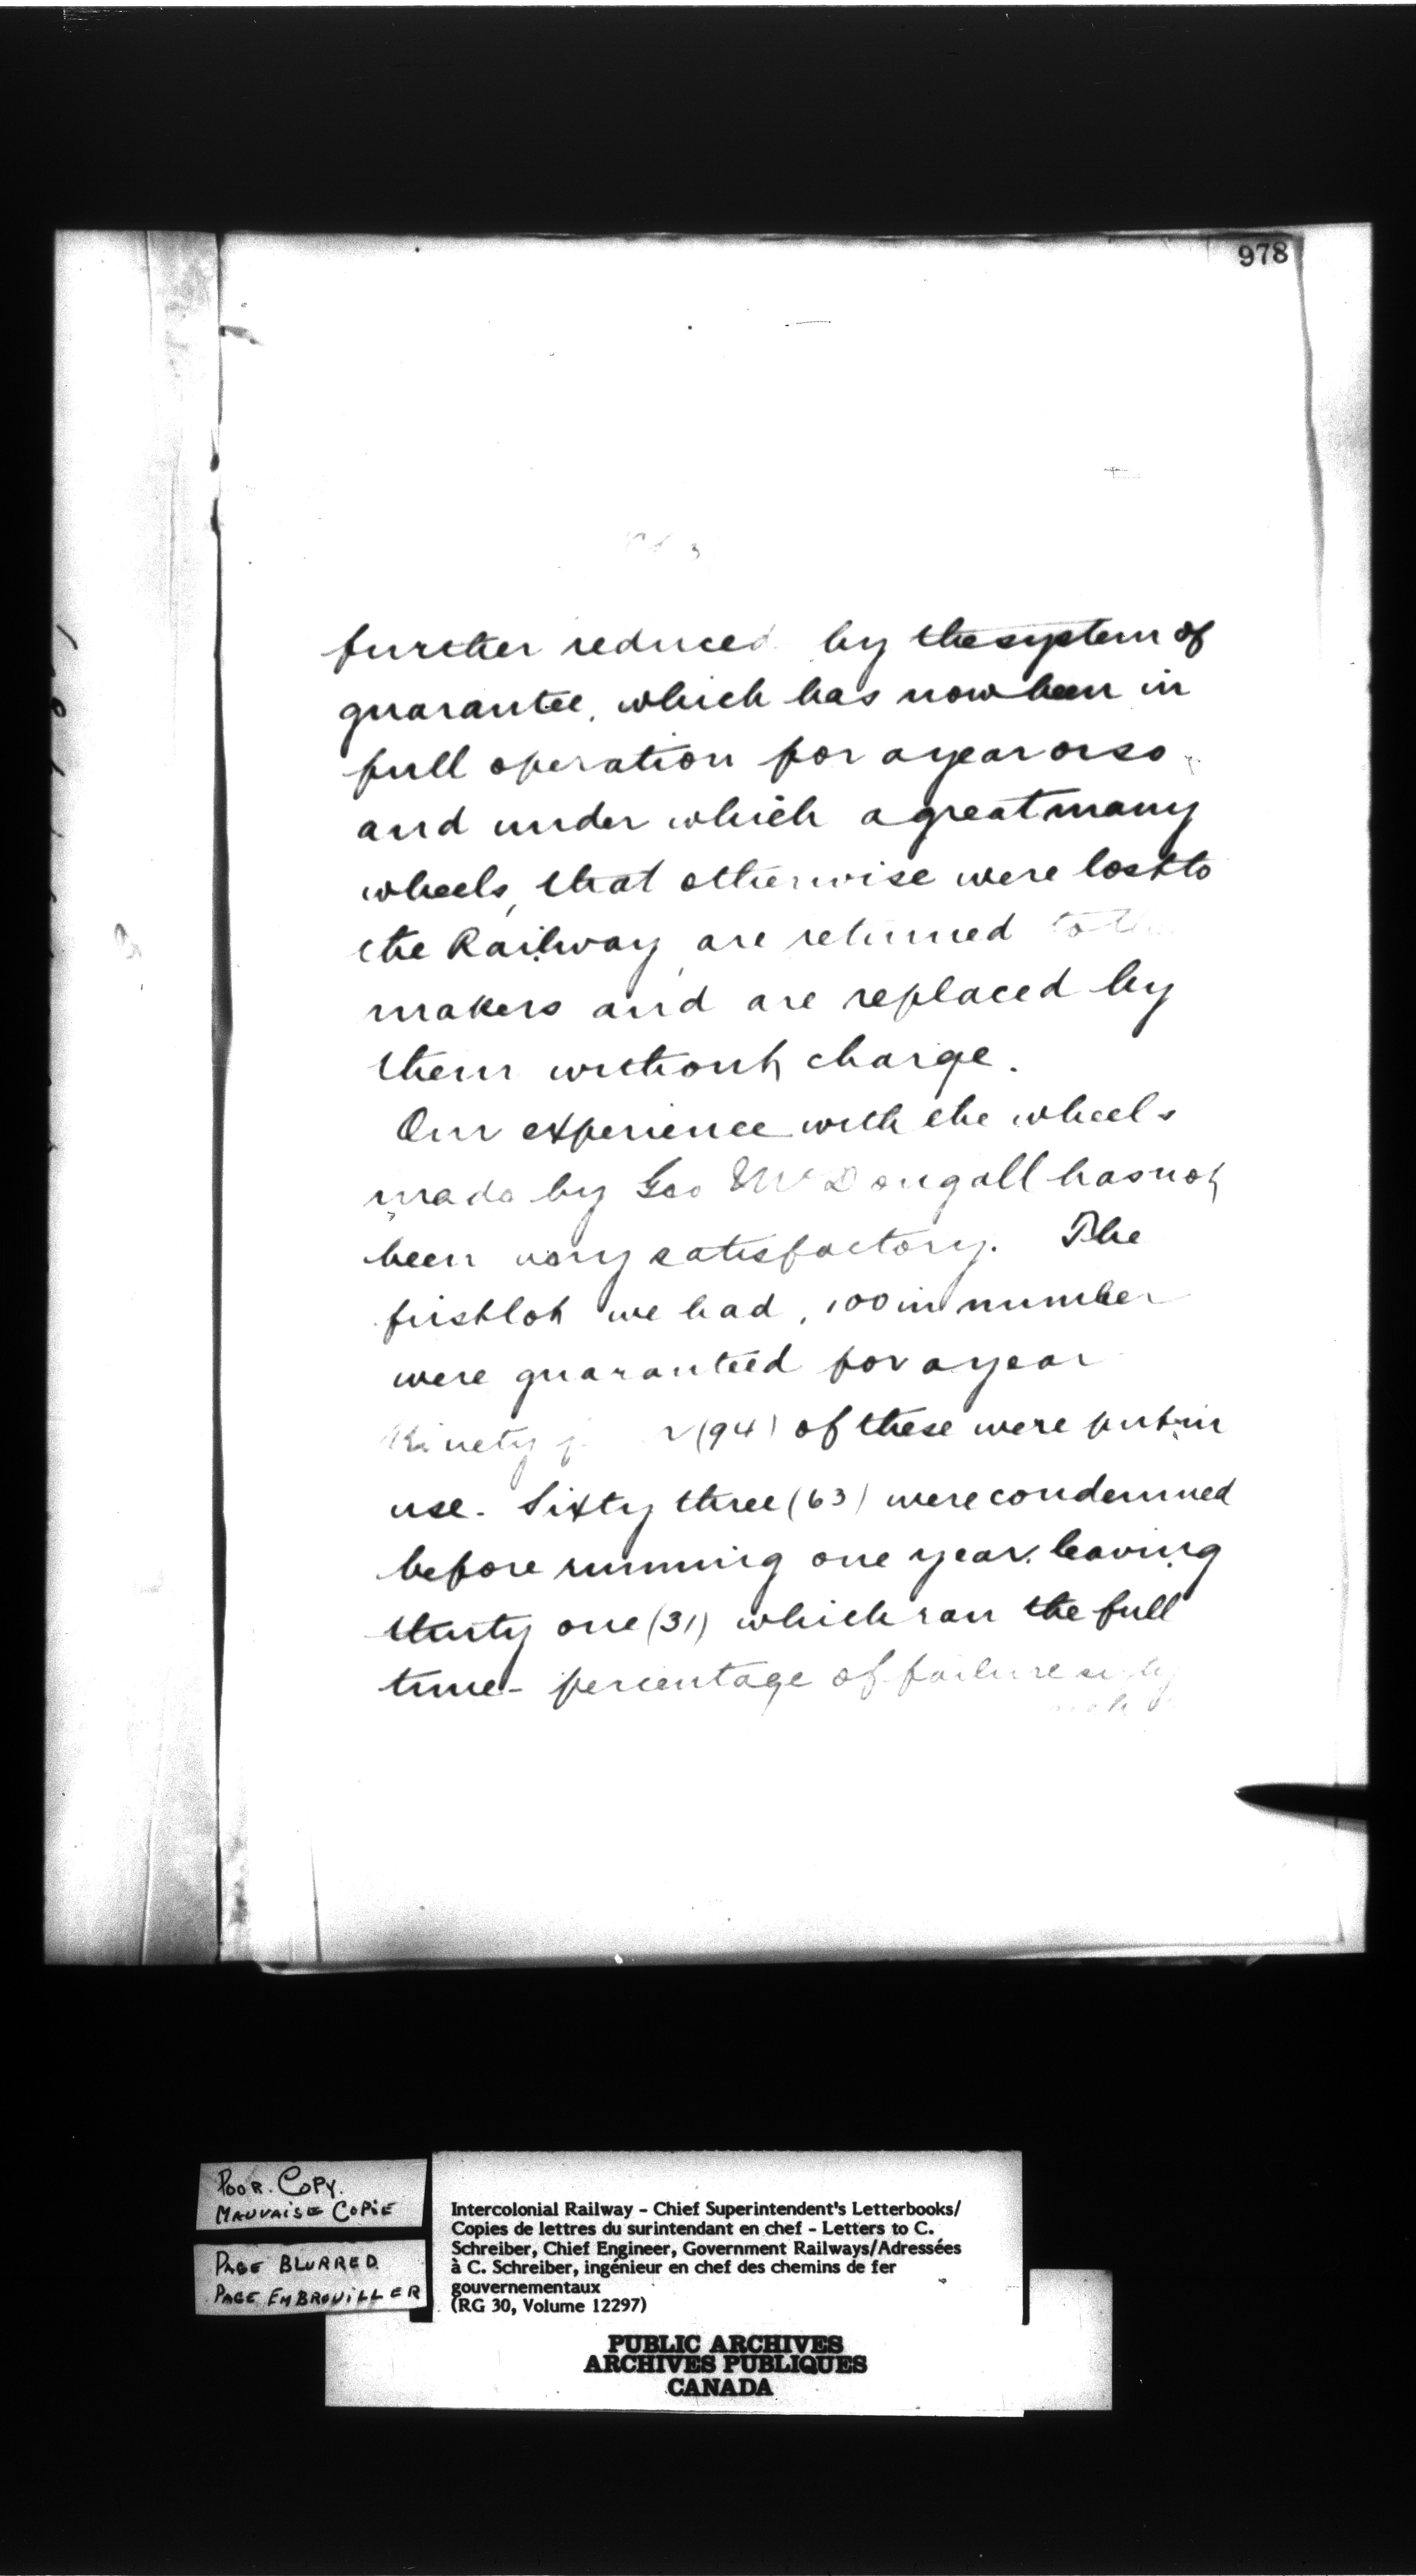 978
further reduced by the system of
guarantee, which has now been in
full operation for a year or so
and under which a great many
wheels, that otherwise were lost to
the Railway, are returned to the
makers and are replaced by
them without charge.
Our experience with the wheels
made by Geo McDougall has not
been very satisfactory. The
first lot we had, 100 in number
were guaranteed for a year
Ninety (94) of these were put in
use. Sixty three (63) were condemned
before running one year, leaving
thirty one (31) which ran the full
time - percentage of failure
POOR COPY.
MAUVAISE COPIE
PAGE BLURRED
PAGE EMBROUILLER
Intercolonial Railway - Chief Superintendent's Letterbooks/
Copies de lettres du surintendant en chef - Letters to C.
Schreiber, Chief Engineer, Government Railways/Adressées
à C. Schreiber, ingénieur en chef des chemins de fer
gouvernementaux
(RG 30, Volume 12297)
PUBLIC ARCHIVES
ARCHIVES PUBLIQUES
CANADA